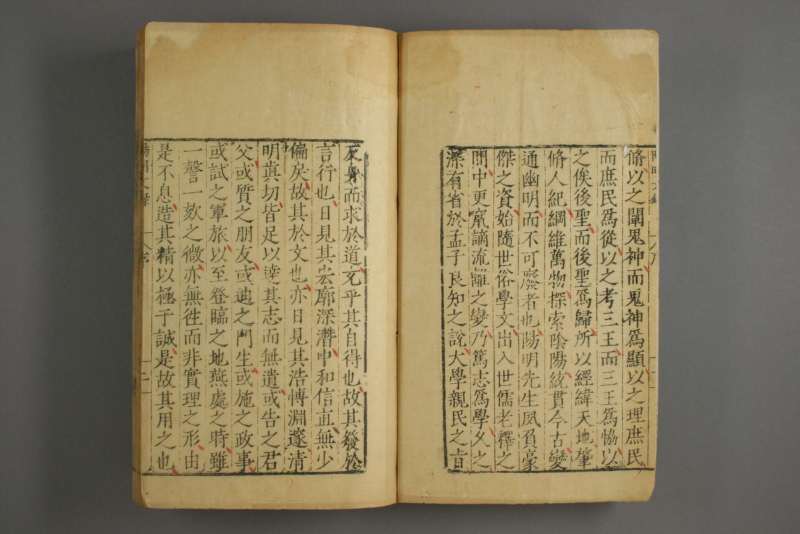 脩以之闡鬼神而鬼神爲顯以之理庶民
而庶民爲從以之考三王而三王爲恊以
之俟後聖而後聖爲歸所以經緯天地肇
脩人紀綱維萬物探索陰陽統貫今古變
通幽明而不可廢者也陽明先生夙負豪
傑之資始隨世俗學文出入世儒老釋之
間中更竄謫流離之變乃篤志爲學久之
深有省於孟子良知之說大學親民之旨
反身而求於道充乎其自得也故其發於
言行也日見其宏廓深潛中和信直無少
偏矣故其於文也亦日見其浩慱淵邃清
明眞切皆足以逹其志而無遺或告之君
父或質之朋友或迪之門生或施之政事
或試之軍旅以至登臨之地燕處之時雖
一謦一欬之微亦無徃而非實理之形由
是不息造其精以極于誠是故其用之也